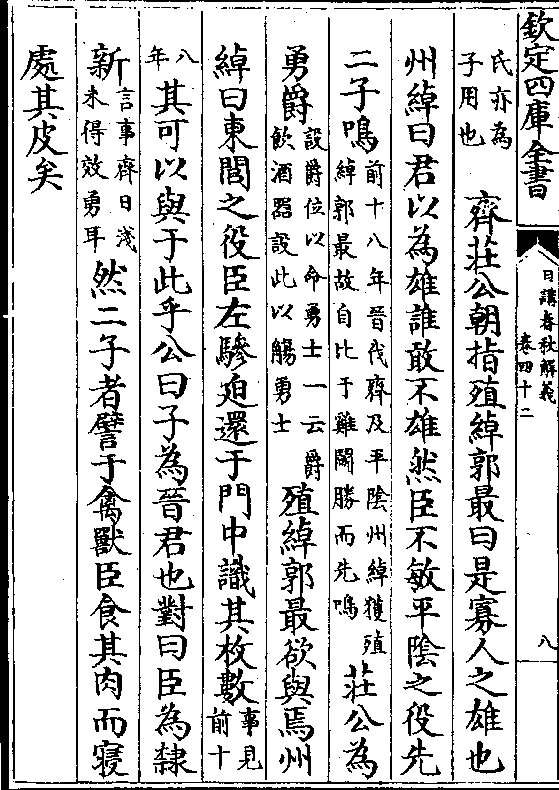 欽定四庫全書
日講春秋解義
卷四十二
八
氏亦為子用也 齊莊公朝指殖綽郭最曰是寡人之雄也
州綽曰君以為雄誰敢不雄然臣不敏平陰之役先
二子鳴前十八年晉伐齊及平陰州綽獲殖綽郭最故自比于雞鬬勝而先鳴 莊公為
勇爵設爵位以命勇士一云爵飲酒器設此以觴勇士 殖綽郭最欲與焉州
綽曰東閭之役臣左驂迫還于門中識其枚數事見前十
八年 其可以與于此乎公曰子為晉君也對曰臣為隸
新言事齊日淺未得效勇耳 然二子者譬于禽獸臣食其肉而寢
處其皮矣